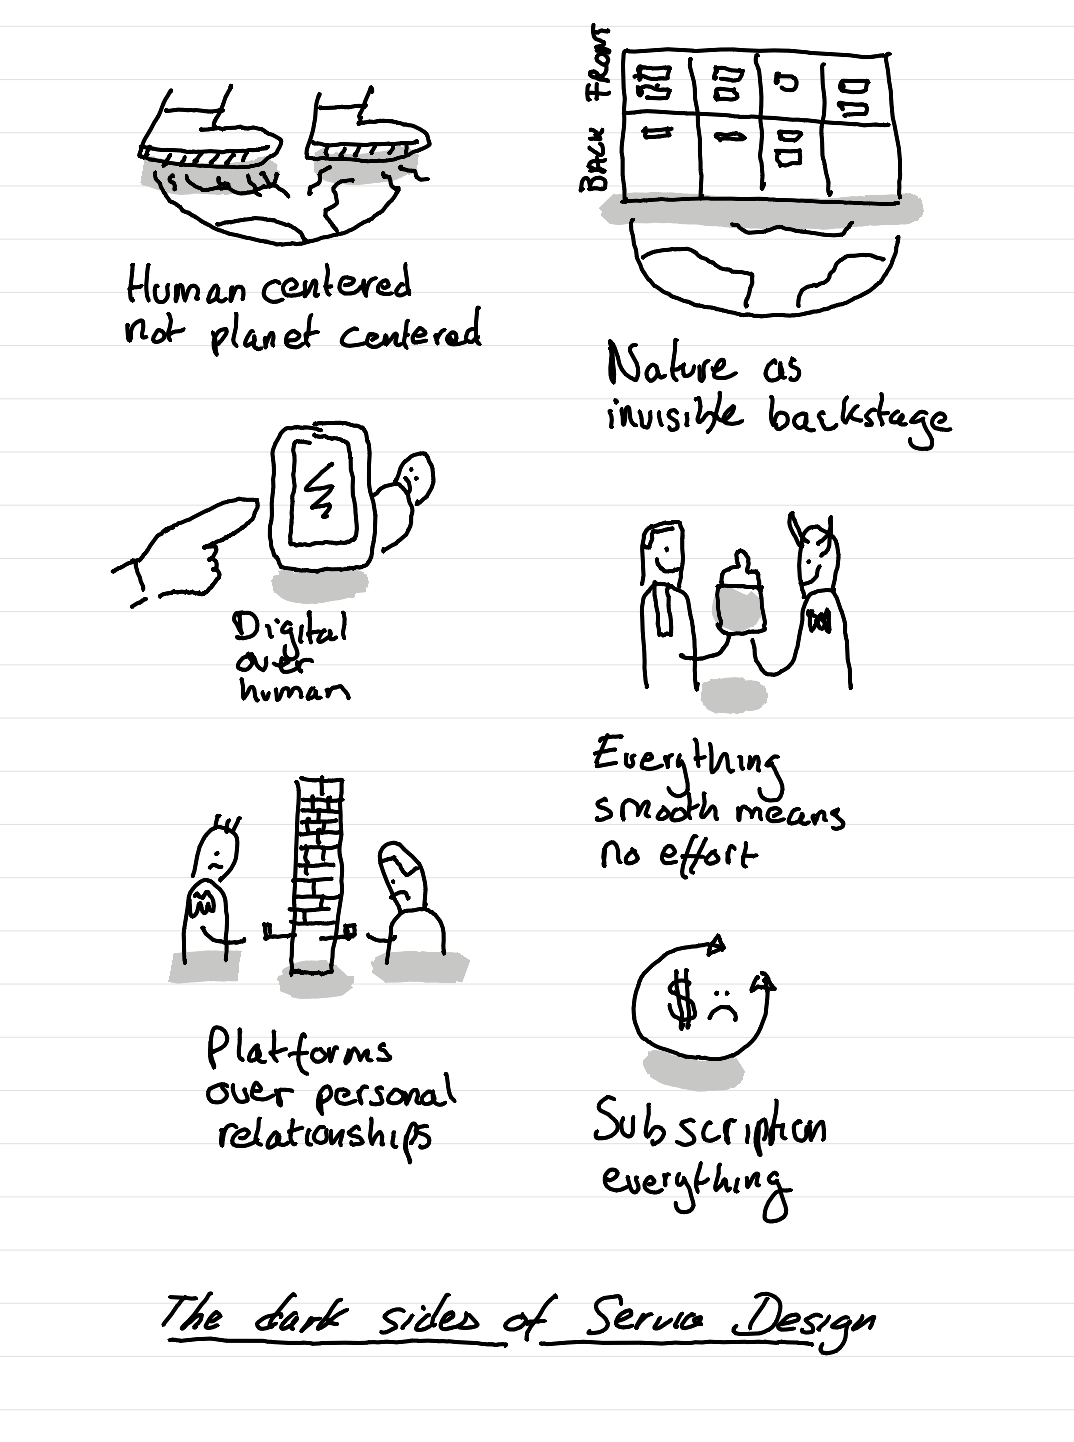 FRONT
BACK
Human centered
not planet centered
Nature as
invisible backstage
Digital
over
human
Everything
smooth means
no effort
Platforms
over personal
relationships
$
Subscription
everything
The dark sides of Service Design